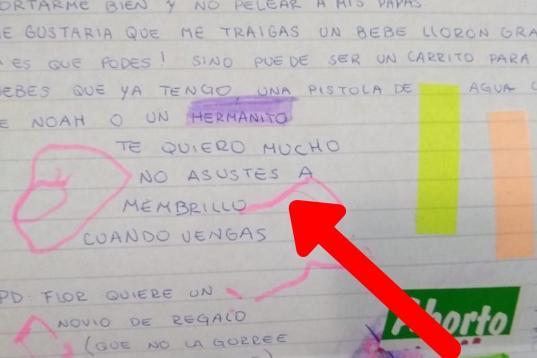 ORTARME BIEN Y NO PELEAR A MIS PAPAS
E GUSTARIA QUE ME TRAIGAS UN BEBE LLORON GRA
ES QUE PODES! SINO PUEDE SER UN CARRITO PARA
EBES QUE YA TENGO, UNA PISTOLA DE AGUA
E NOAH O UN HERMANITO
TE QUIERO MUCHO
NO ASUSTES A
MEMBRILLO
CUANDO VENGAS
PD: FLOR QUIERE UN
NOVIO DE REGALO
(QUE NO LA GORREE
Aborto